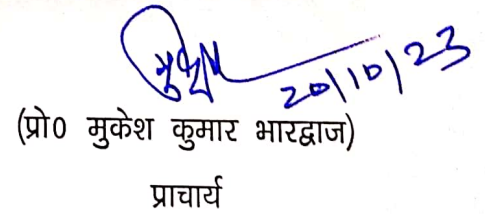 मुकेश
20/10/23
(प्रो० मुकेश कुमार भारद्वाज)
प्राचार्य